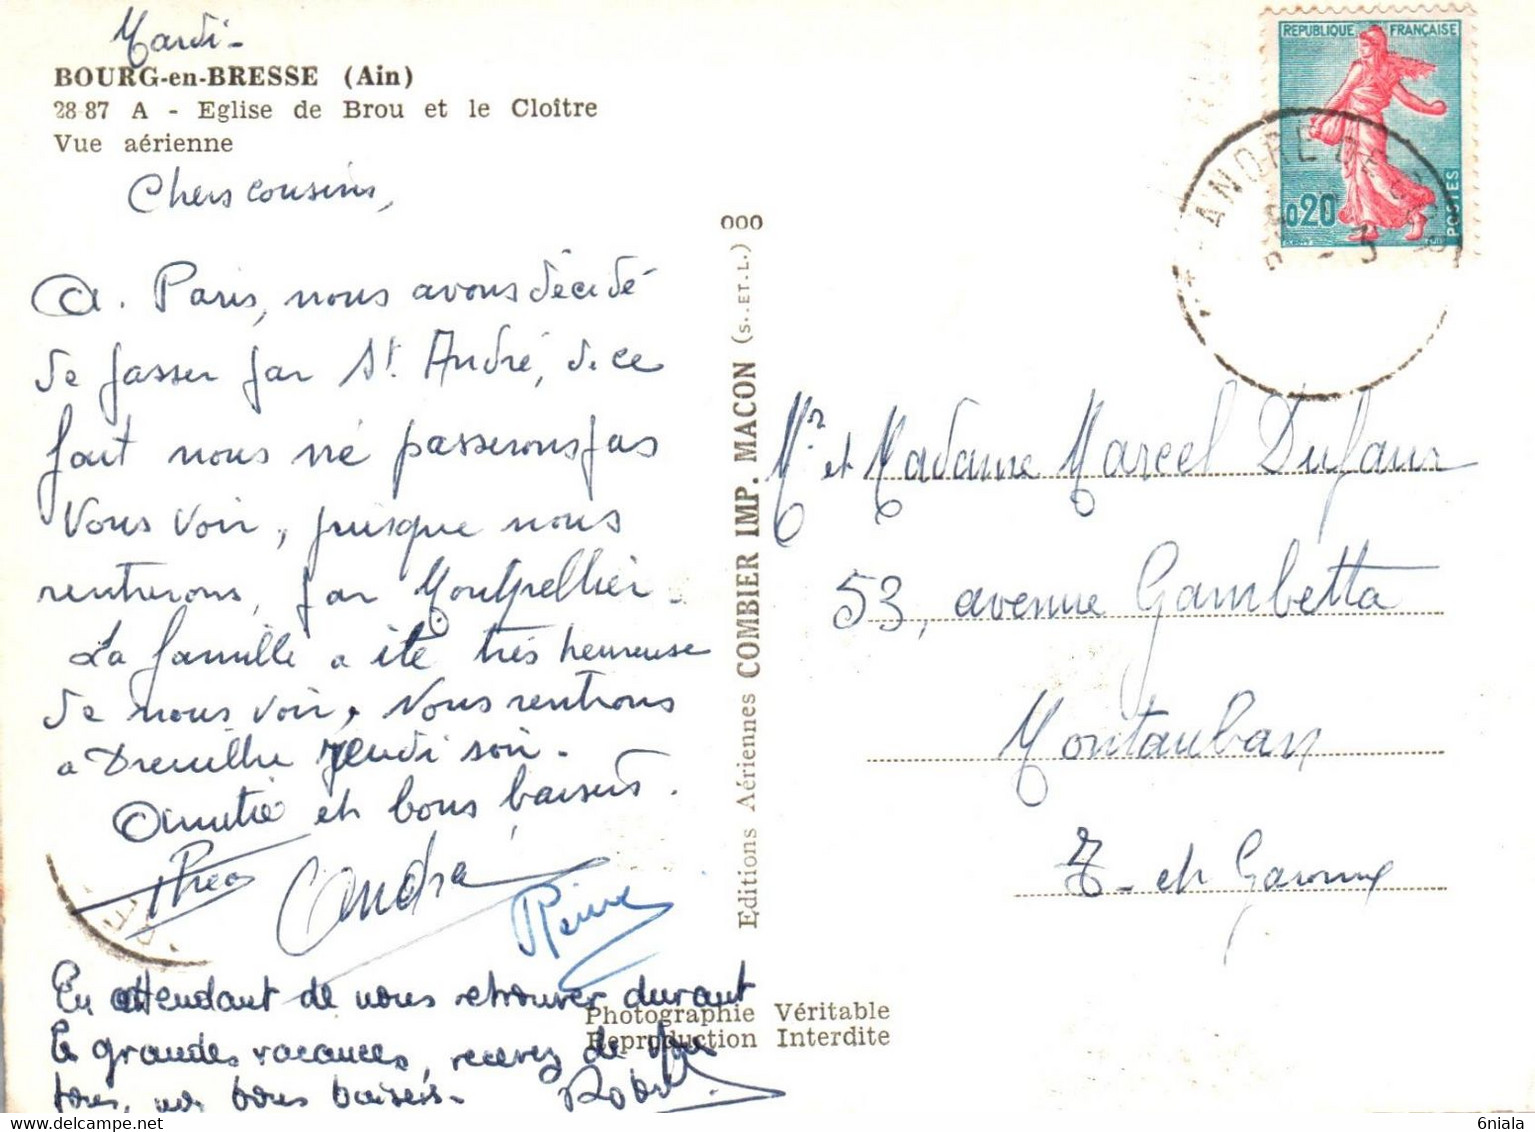 Mardi -
BOURG-en-BRESSE (Ain)
28-87 A - Eglise de Brou et le Cloître
Vue aérienne
Chers cousins,
A. Paris, nous avons décidé
de passer par St. André, de ce
fait nous ne passerons pas
vous voir, puisque nous
rentrerons, par Montpellier.
La famille a été très heureuse
de nous voir. Nous rentrons
a jeudi soir.
Amitié et bons baisers.
Théo Andrée Reine
En attendant de nous retrouver durant
les grandes vacances, recevez de
tous, nos bons baisers. Robert
000
Editions Aériennes COMBIER IMP. MACON (S.-ET-L.)
Photographie Véritable
Reproduction Interdite
REPUBLIQUE FRANÇAISE
0,20
POSTES
ANDRE DE
Mr et Madame Marcel Dufaur
53, avenue Gambetta
Montauban
T. et Garonne
© delcampe.net
6niala